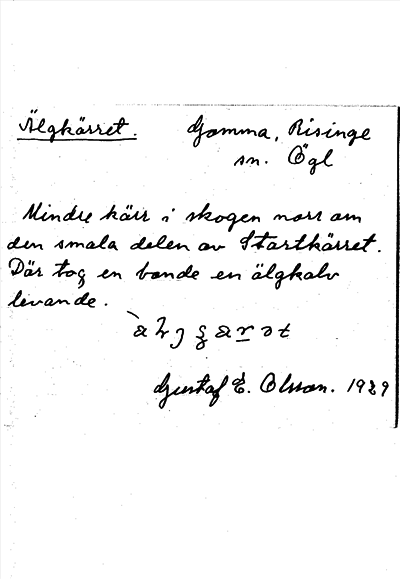 Älgkärret. Gamma, Risinge
sn. Ögl
Mindre kärr i skogen norr om
den smala delen av Startkärret.
Där tog en bonde en älgkalv
levande.
Gustaf E. Olsson. 1929